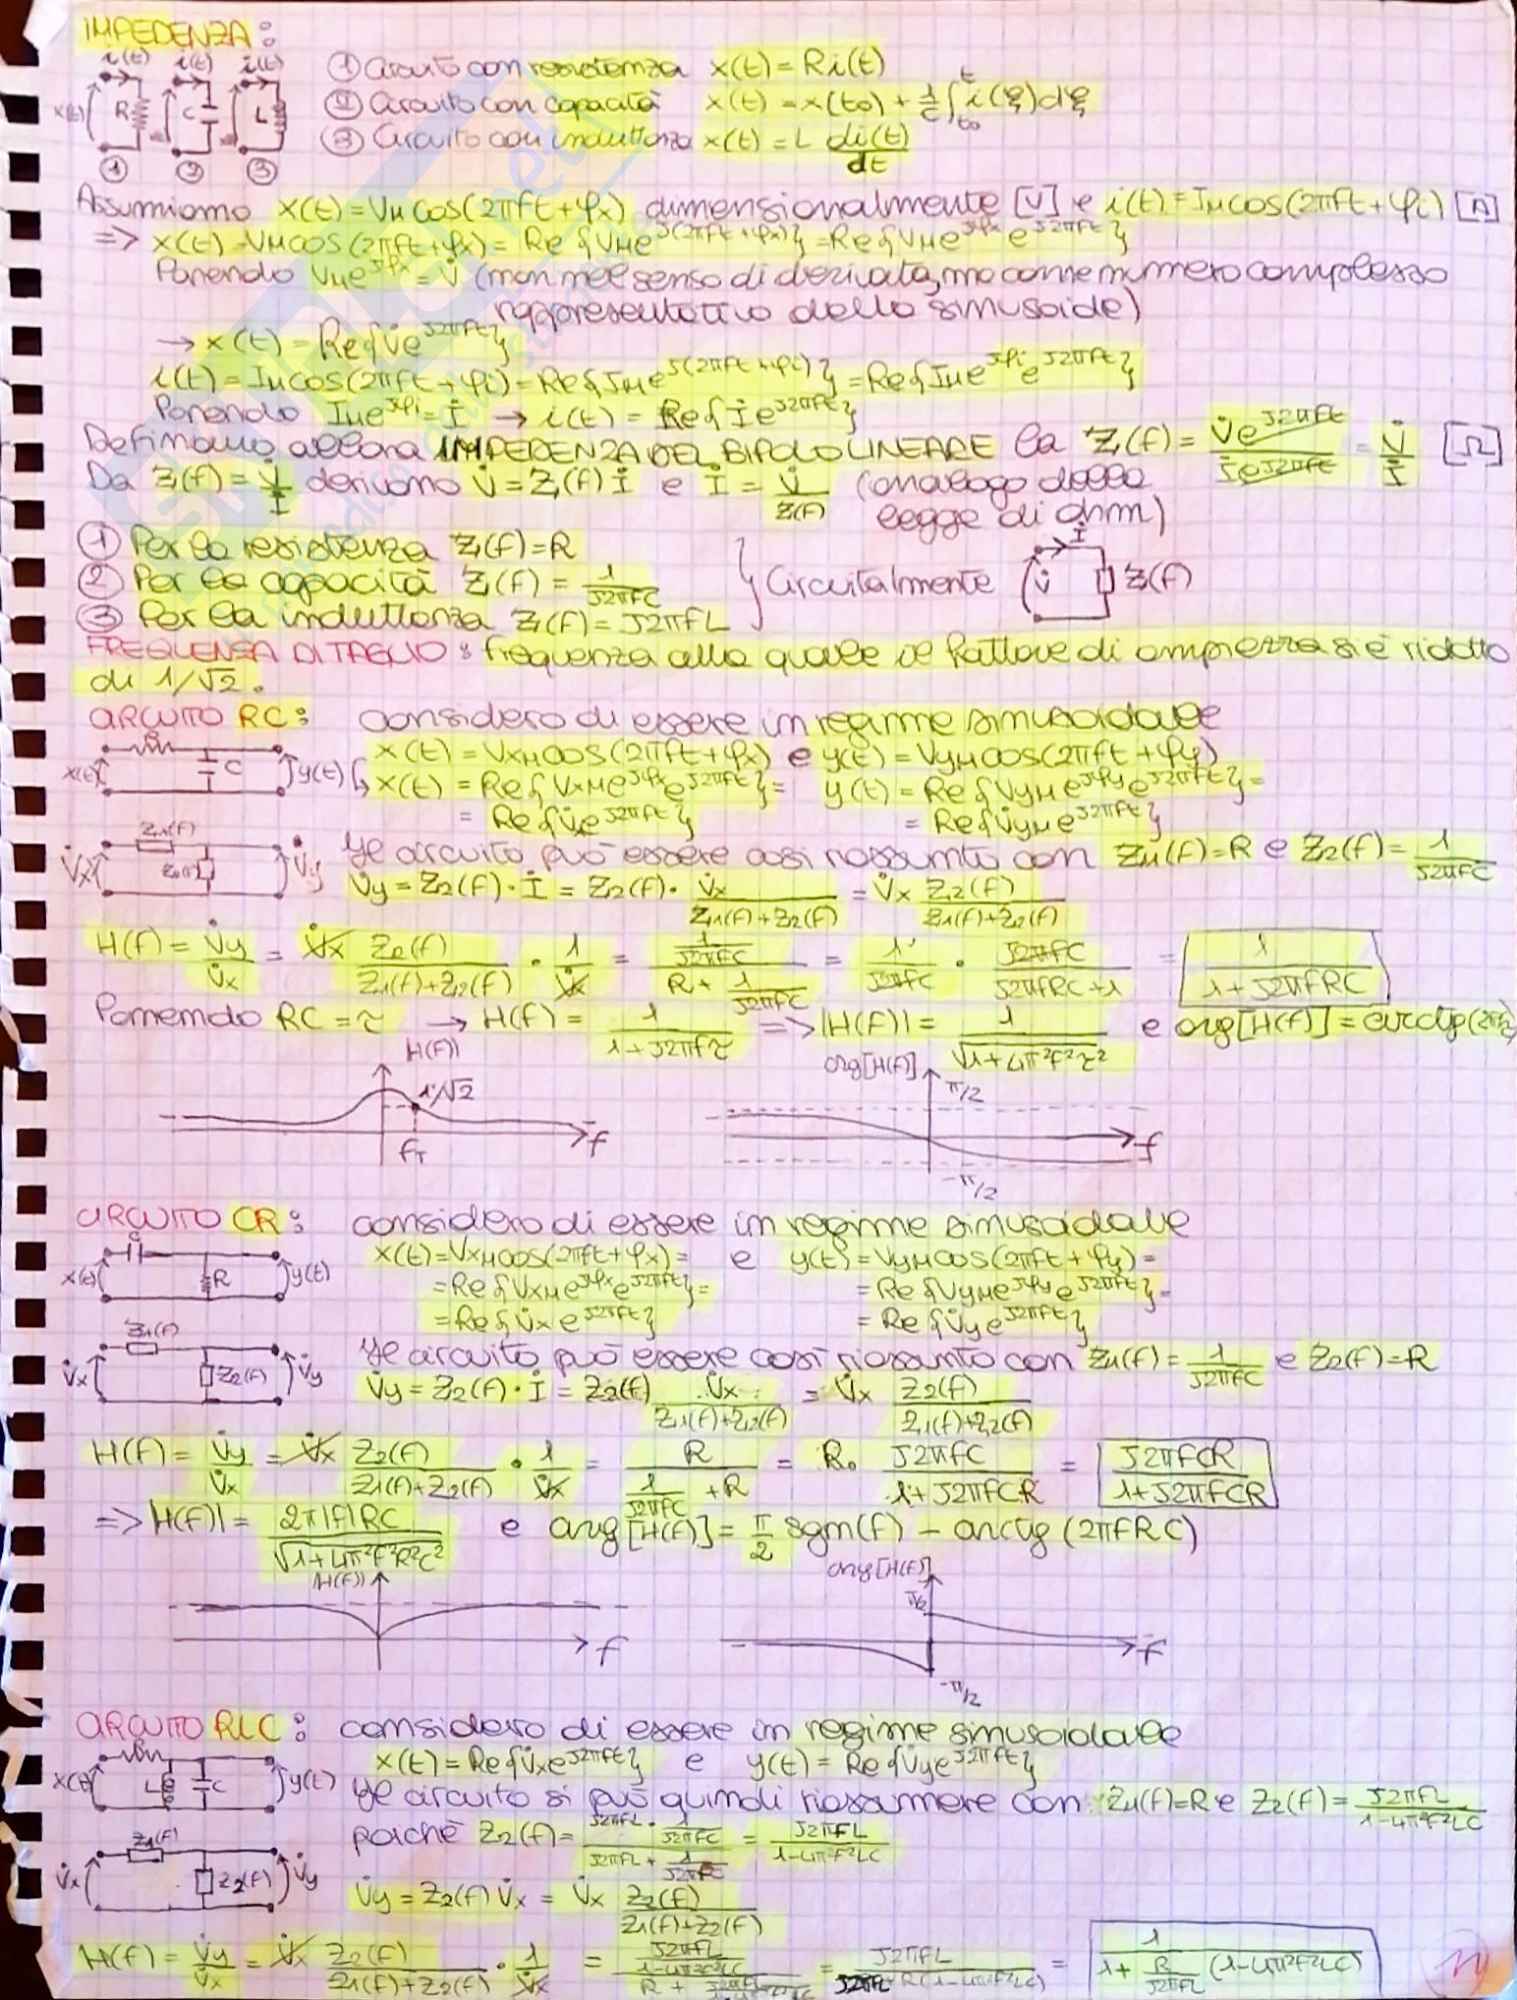 IMPEDENZA:
i(t) i(t) i(t)
x(t) R C L
① ② ③
① Circuito con resistenza x(t) = Ri(t)
② Circuito con capacità x(t) = x(t₀) + 1/C ∫_{t₀}^{t} i(ξ)dξ
③ Circuito con induttanza x(t) = L di(t)/dt
Assumiamo x(t) = V_M cos(2πft+φx) dimensionalmente [V] e i(t) = I_M cos(2πft+φi) [A]
=> x(t) = V_M cos(2πft+φx) = Re{V_M e^{J(2πft+φx)}} = Re{V_M e^{Jφx} e^{J2πft}}
Ponendo V_M e^{Jφx} = V̇ (non nel senso di derivata, ma come numero complesso
rappresentativo della sinusoide)
→ x(t) = Re{V̇e^{J2πft}}
i(t) = I_M cos(2πft+φi) = Re{I_M e^{J(2πft+φi)}} = Re{I_M e^{Jφi} e^{J2πft}}
Ponendo I_M e^{Jφi} = İ → i(t) = Re{İe^{J2πft}}
Definiamo allora IMPEDENZA DEL BIPOLO LINEARE la Z(f) = V̇e^{J2πft}/İe^{J2πft} = V̇/İ [Ω]
Da Z(f) = V̇/İ derivano V̇ = Z(f) İ e İ = V̇/Z(f) (analogo della
legge di Ohm)
① Per la resistenza Z(f) = R
② Per la capacità Z(f) = 1/J2πfC
③ Per la induttanza Z(f) = J2πfL
Circuitalmente V̇ İ Z(f)
FREQUENZA DI TAGLIO: frequenza alla quale il fattore di ampiezza si è ridotto
di 1/√2.
CIRCUITO RC: considero di essere in regime sinusoidale
x(t) R C y(t)
x(t) = V_xM cos(2πft+φx) e y(t) = V_yM cos(2πft+φy)
x(t) = Re{V_xM e^{Jφx} e^{J2πft}} = y(t) = Re{V_yM e^{Jφy} e^{J2πft}} =
= Re{V̇x e^{J2πft}} = Re{V̇yM e^{J2πft}}
V̇x Z1(f) Z2(f) V̇y
Il circuito può essere così riassunto con Z1(f) = R e Z2(f) = 1/J2πfC
V̇y = Z2(f) · İ = Z2(f) · V̇x/Z1(f)+Z2(f) = V̇x Z2(f)/Z1(f)+Z2(f)
H(f) = V̇y/V̇x = V̇x Z2(f)/Z1(f)+Z2(f) · 1/V̇x = (1/J2πfC)/(R + 1/J2πfC) = 1/J2πfC · J2πfC/J2πfRC+1 = 1/1+J2πfRC
Ponendo RC = τ → H(f) = 1/1+J2πfτ => |H(f)| = 1/√1+4π²f²τ² e arg[H(f)] = arctg(2πfτ)
|H(f)| 1/√2 f_T f
arg[H(f)] π/2 -π/2 f
CIRCUITO CR: considero di essere in regime sinusoidale
x(t) C R y(t)
x(t) = V_xM cos(2πft+φx) = e y(t) = V_yM cos(2πft+φy) =
= Re{V_xM e^{Jφx} e^{J2πft}} = = Re{V_yM e^{Jφy} e^{J2πft}} =
= Re{V̇x e^{J2πft}} = Re{V̇y e^{J2πft}}
V̇x Z1(f) Z2(f) V̇y
Il circuito può essere così riassunto con Z1(f) = 1/J2πfC e Z2(f) = R
V̇y = Z2(f) · İ = Z2(f) · V̇x/Z1(f)+Z2(f) = V̇x Z2(f)/Z1(f)+Z2(f)
H(f) = V̇y/V̇x = V̇x Z2(f)/Z1(f)+Z2(f) · 1/V̇x = R/(1/J2πfC + R) = R · J2πfC/1+J2πfCR = J2πfCR/1+J2πfCR
=> |H(f)| = 2π|f|RC/√1+4π²f²R²C² e arg[H(f)] = π/2 sgn(f) - arctg(2πfRC)
|H(f)| f
arg[H(f)] π/2 -π/2 f
CIRCUITO RLC: considero di essere in regime sinusoidale
x(t) R L C y(t)
x(t) = Re{V̇x e^{J2πft}} e y(t) = Re{V̇y e^{J2πft}}
Il circuito si può quindi riassumere con Z1(f) = R e Z2(f) = J2πfL/1-4π²f²LC
V̇x Z1(f) Z2(f) V̇y
poiché Z2(f) = (J2πfL · 1/J2πfC)/(J2πfL + 1/J2πfC) = J2πfL/1-4π²f²LC
V̇y = Z2(f) V̇x = V̇x Z2(f)/Z1(f)+Z2(f)
H(f) = V̇y/V̇x = V̇x Z2(f)/Z1(f)+Z2(f) · 1/V̇x = (J2πfL/1-4π²f²LC)/(R + J2πfL/1-4π²f²LC) = J2πfL/J2πfL+R(1-4π²f²LC) = 1/(1 + R/J2πfL (1-4π²f²LC))